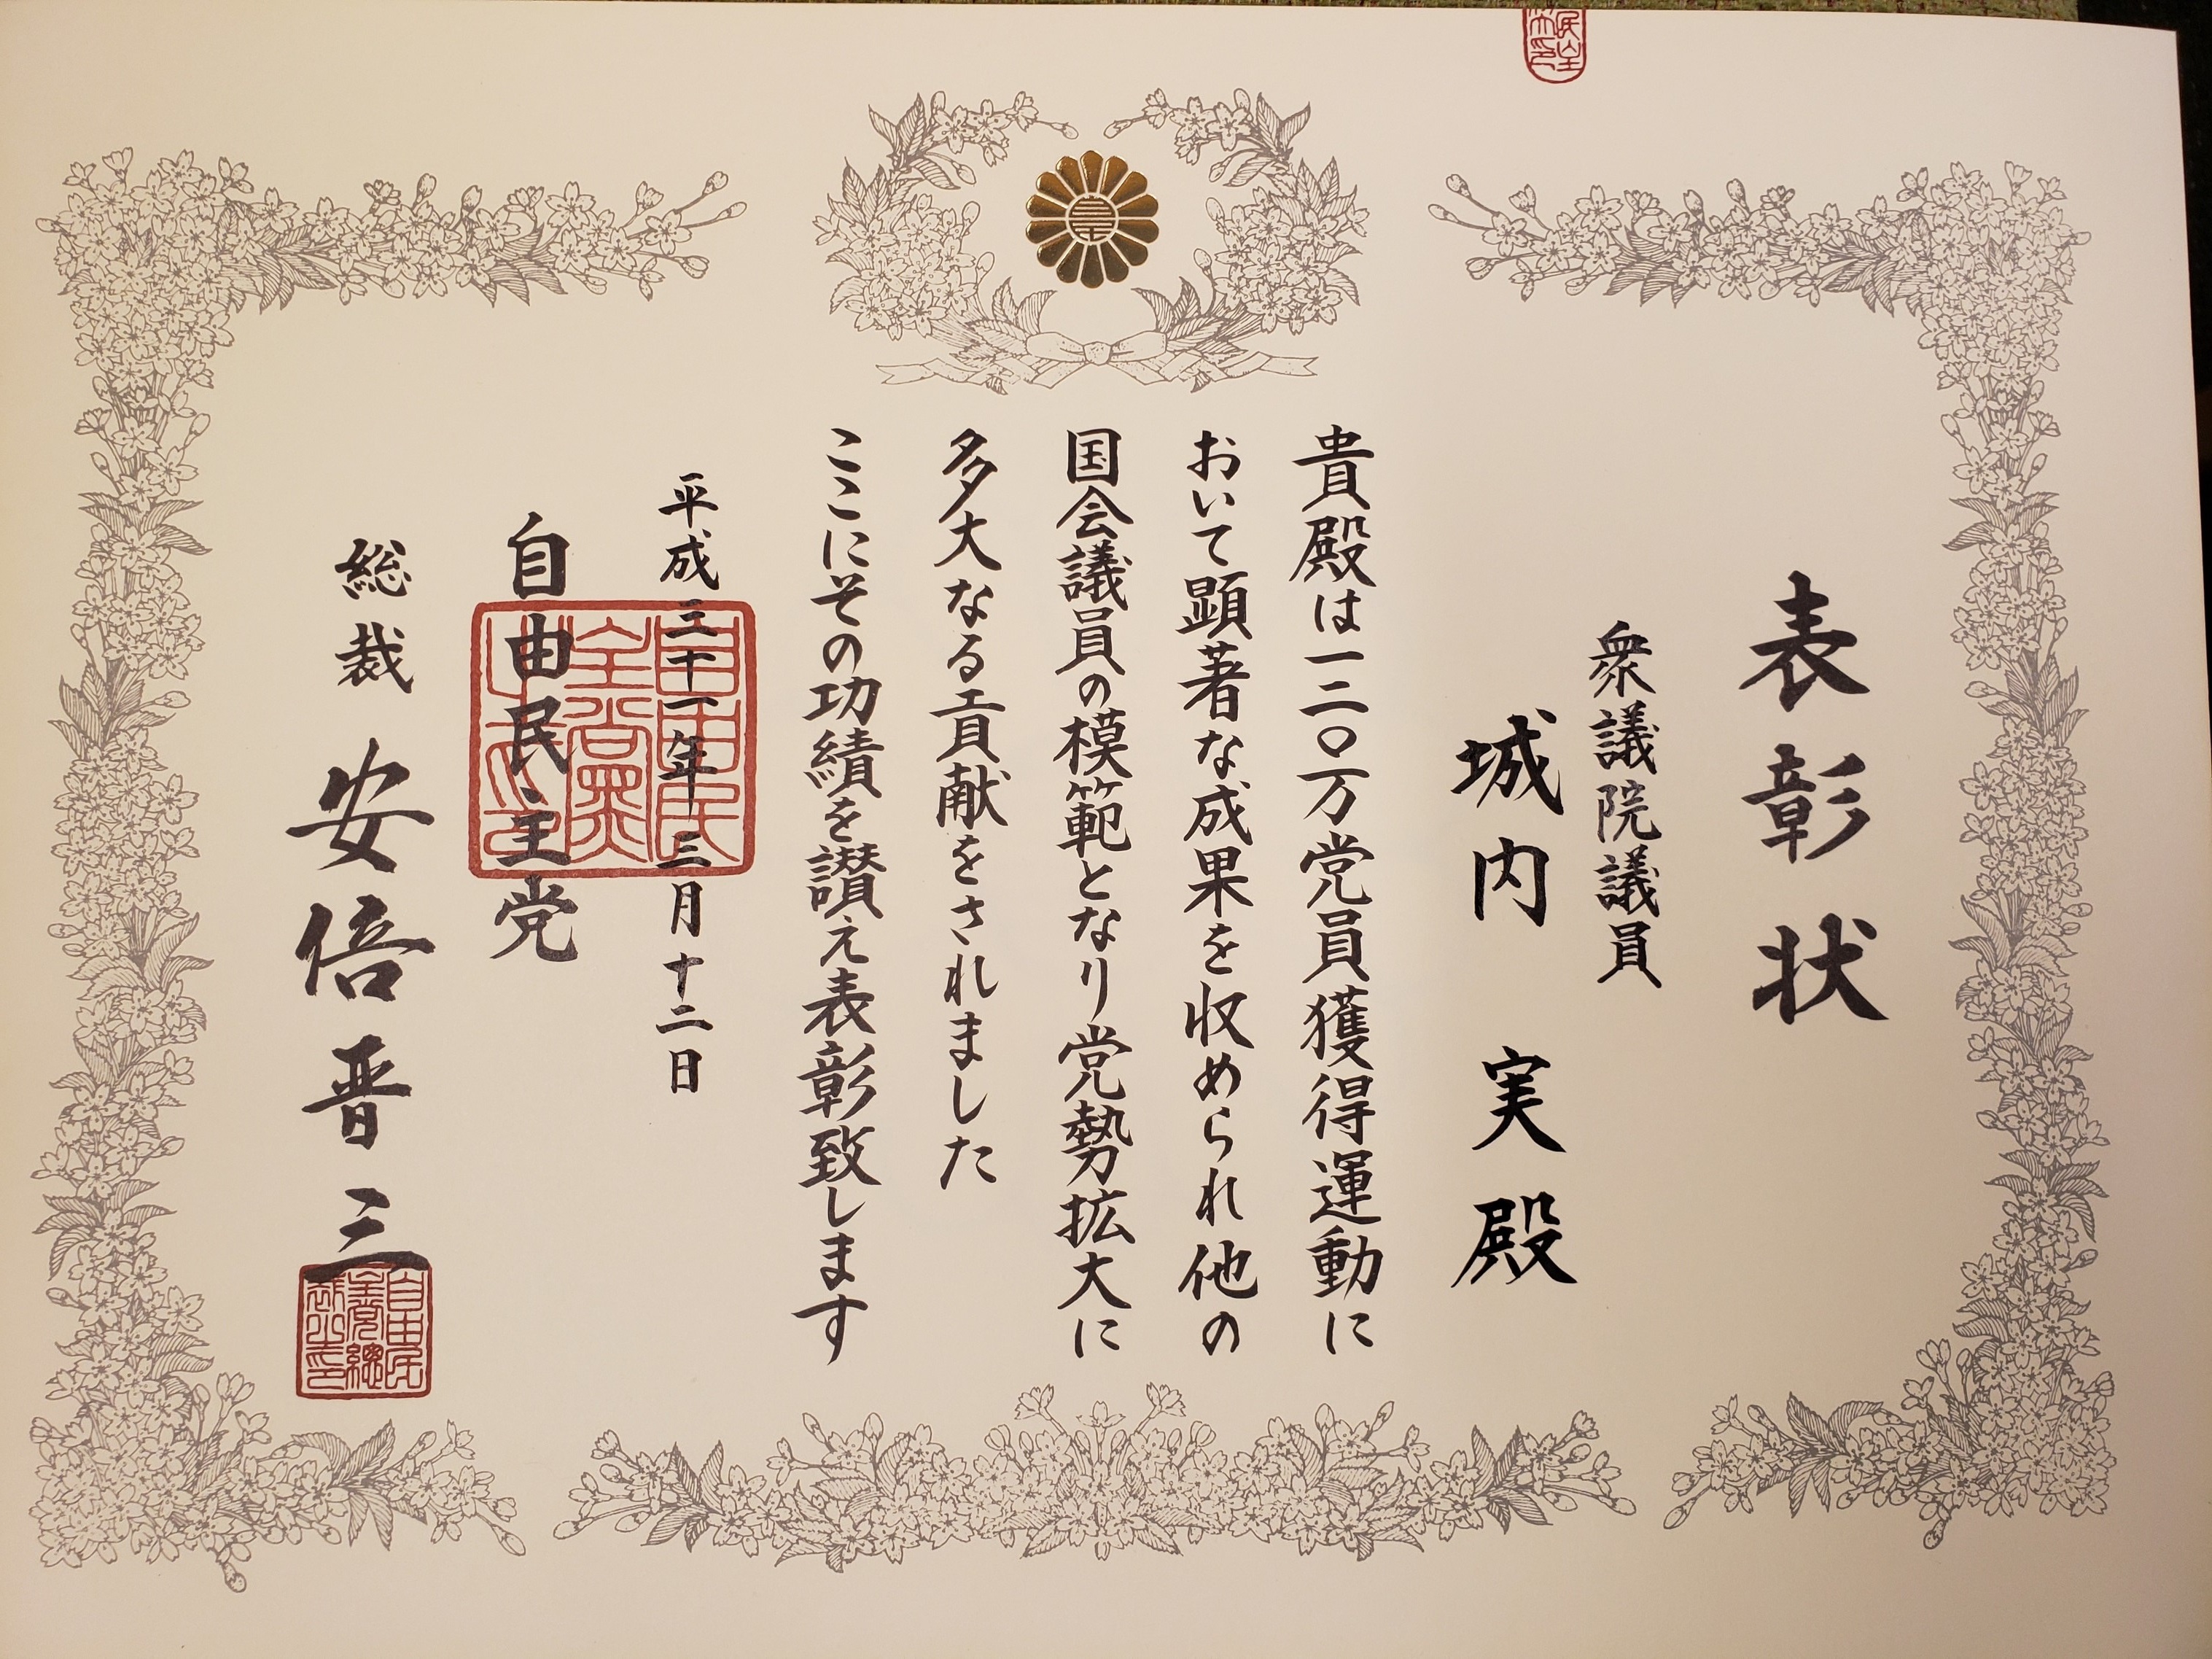 表彰状
衆議院議員
城内 実 殿
貴殿は一二〇万党員獲得運動に
おいて顕著な成果を収められ他の
国会議員の模範となり党勢拡大に
多大なる貢献をされました
ここにその功績を讃え表彰致します
平成三十一年三月十二日
自由民主党
総裁 安倍晋三